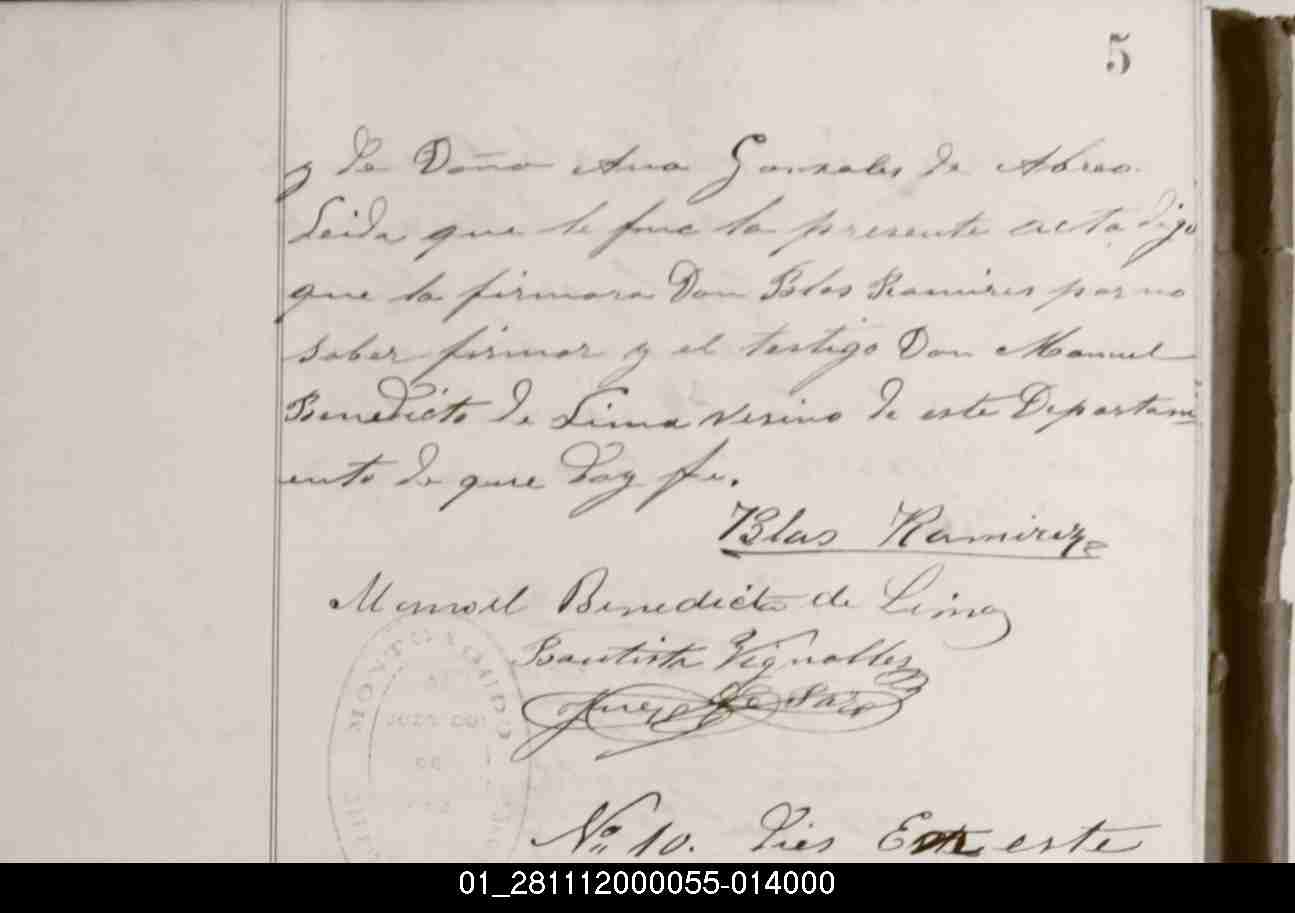 5
y de Doña Ana Gonzales de Abreo.
Leida que le fue la presente acta dijo
que la firmara Don Blas Ramires por no
saber firmar y el testigo Don Manuel
Benedicto de Lima vesino de este Departam
ento de que doy fe.
Blas Ramirez
Manoel Benedicto de Lima
Bautista Vignolles
Juez de Paz
JUZG
No 10. Dies En este
01_281112000055-014000